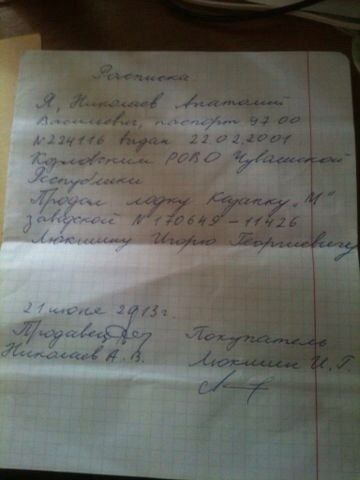 Расписка
Я, Николаев Анатолий
Васильевич, паспорт 97 00
N 224116 выдан 22.02.2001
Козловским РОВО Чувашской
Республики
Продал лодку Казанку „М"
заводской N 170649-11426
Люкшину Игорю Георгиевичу
21 июня 2013 г.
Продавец Покупатель
Николаев А. В. Люкшин И. Г.